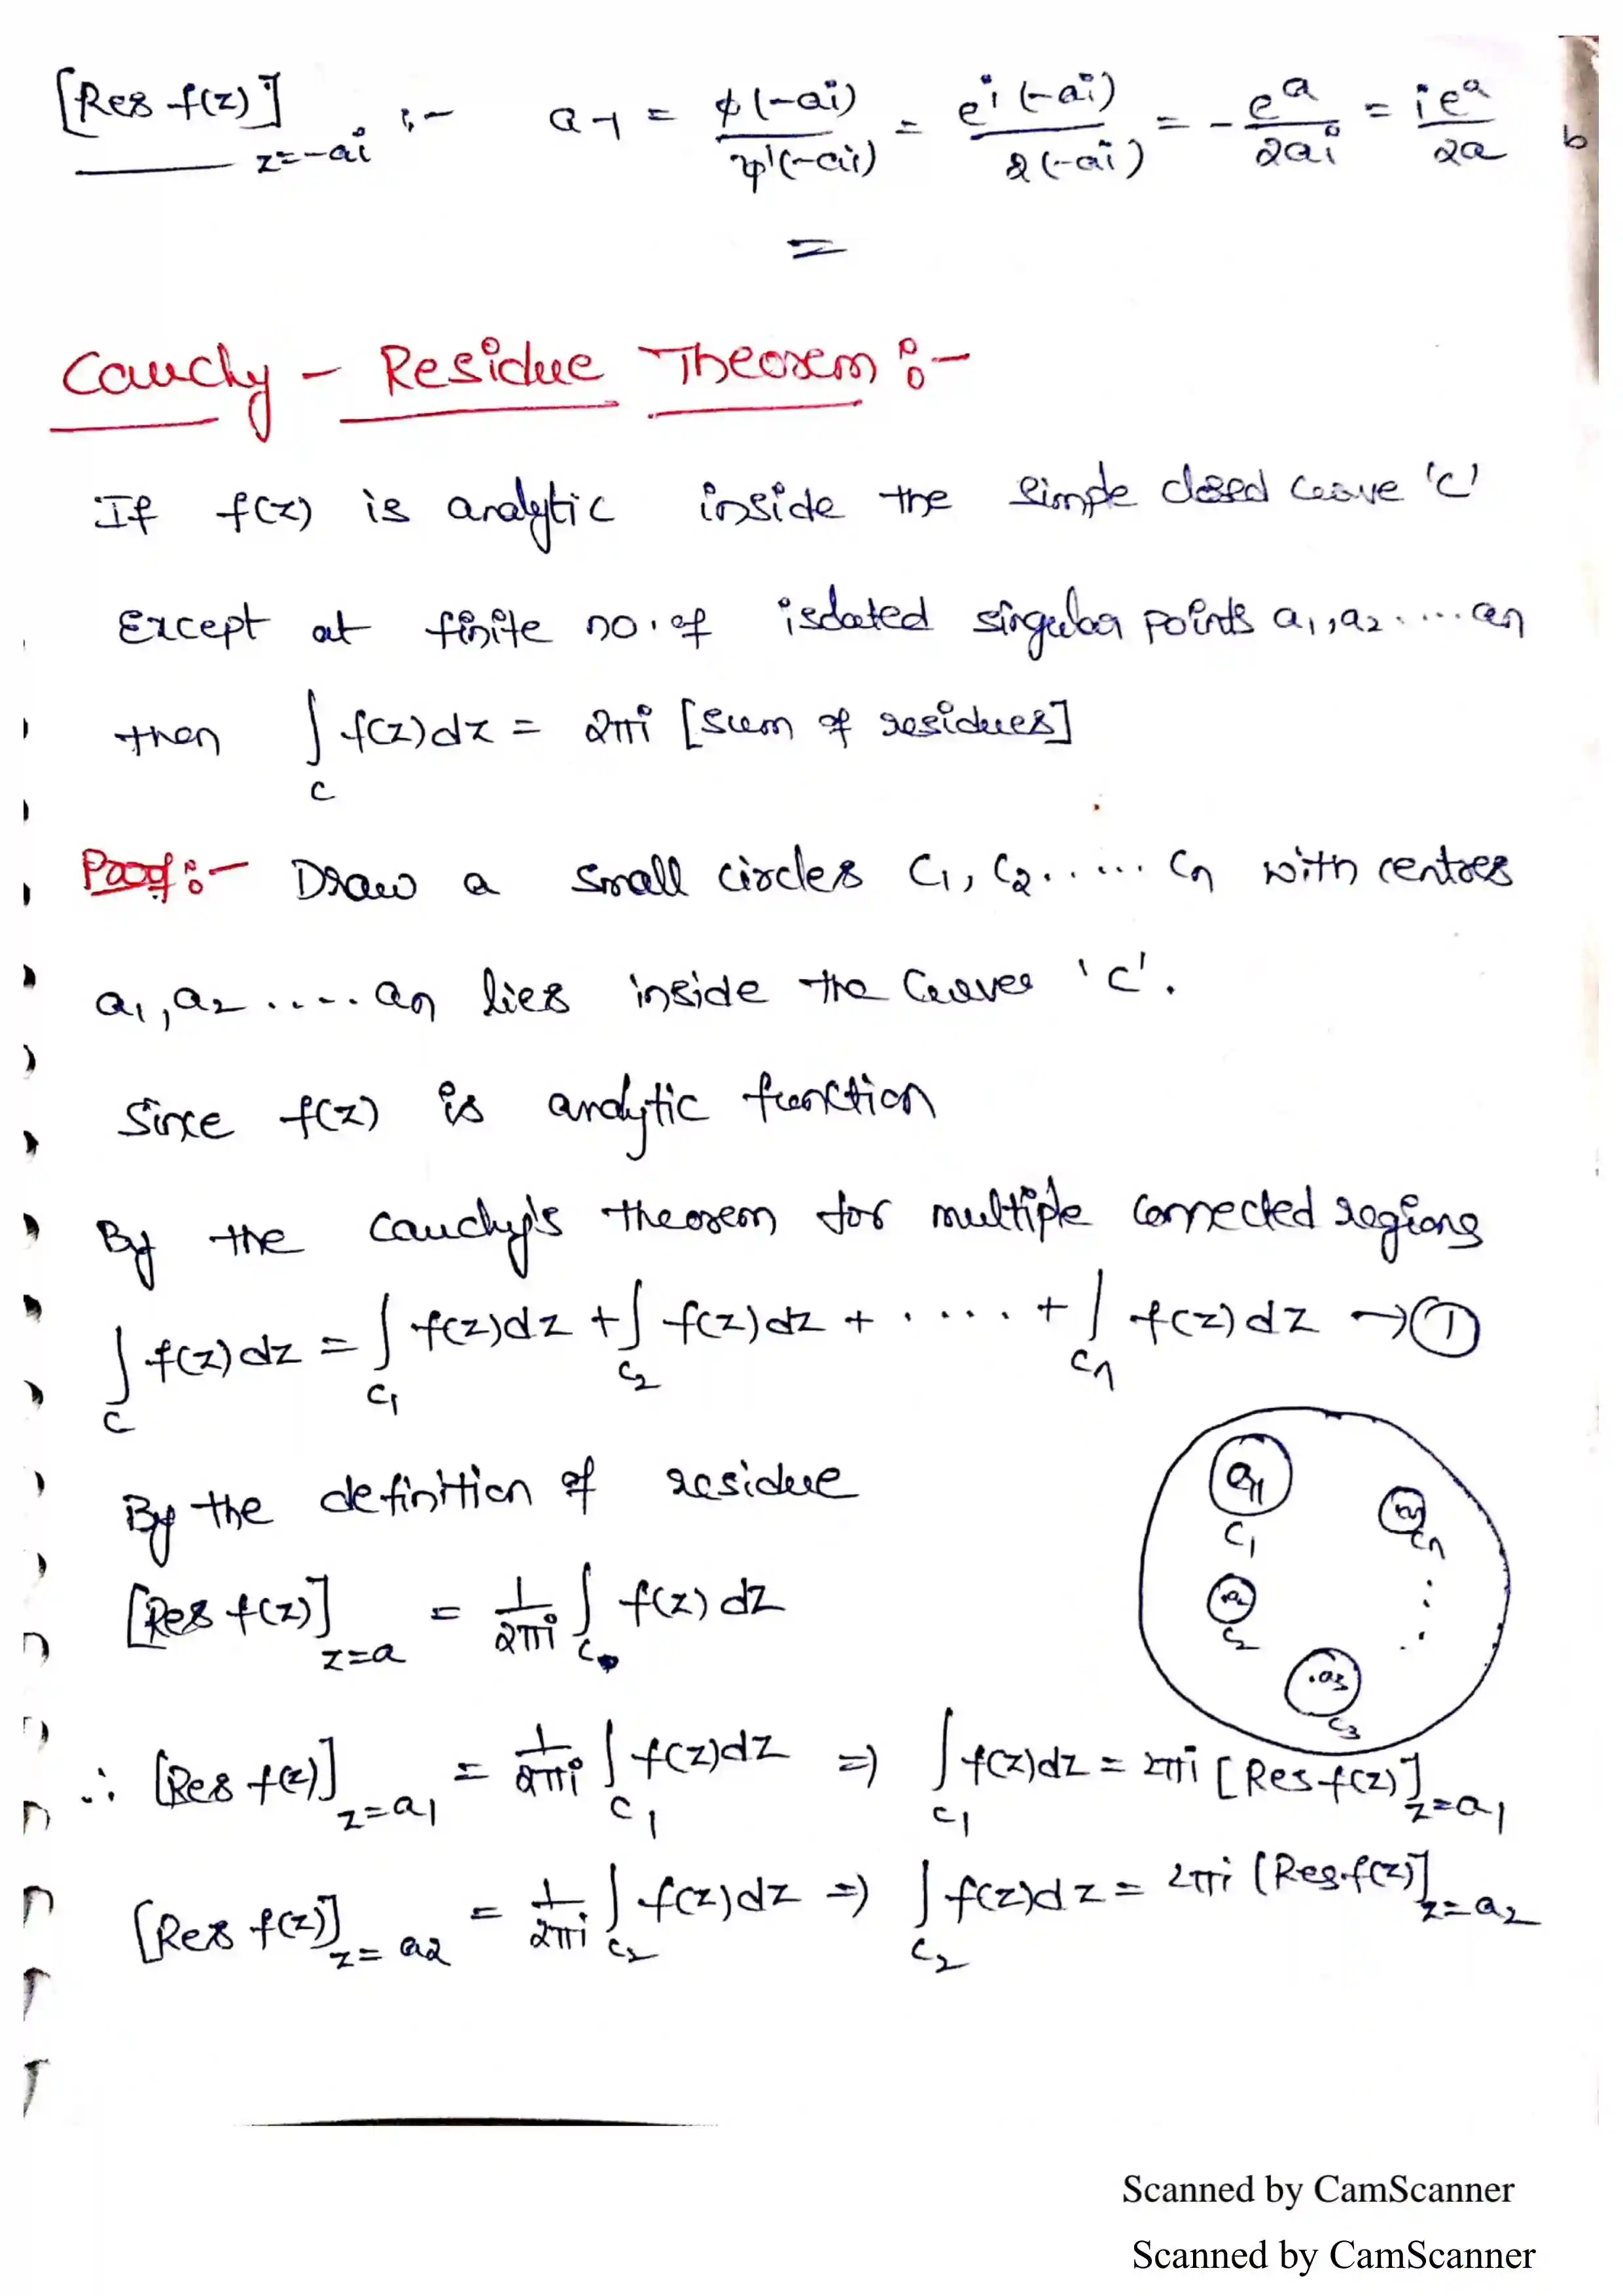 [Res f(z)]z=-ai :- a-1 = φ(-ai)/ψ'(-ai) = e^i(-ai)/2(-ai) = -e^a/2ai = ie^a/2a
=
Cauchy - Residue Theorem :-
If f(z) is analytic inside the simple closed curve 'C'
Except at finite no. of isolated singular points a1, a2 ..... an
then ∫C f(z)dz = 2πi [sum of residues]
Proof :- Draw a small circles C1, C2..... Cn with centres
a1, a2 ..... an lies inside the Curves 'C'.
Since f(z) is analytic function
By the Cauchy's theorem for multiple connected regions
∫C f(z)dz = ∫C1 f(z)dz + ∫C2 f(z)dz + ..... + ∫Cn f(z)dz → ①
By the definition of residue
[Res f(z)]z=a = 1/2πi ∫C f(z)dz
∴ [Res f(z)]z=a1 = 1/2πi ∫C1 f(z)dz ⇒ ∫C1 f(z)dz = 2πi [Res f(z)]z=a1
[Res f(z)]z=a2 = 1/2πi ∫C2 f(z)dz ⇒ ∫C2 f(z)dz = 2πi [Res f(z)]z=a2
a1
C1
an
Cn
a2
C2
.a3
C3
Scanned by CamScanner
Scanned by CamScanner